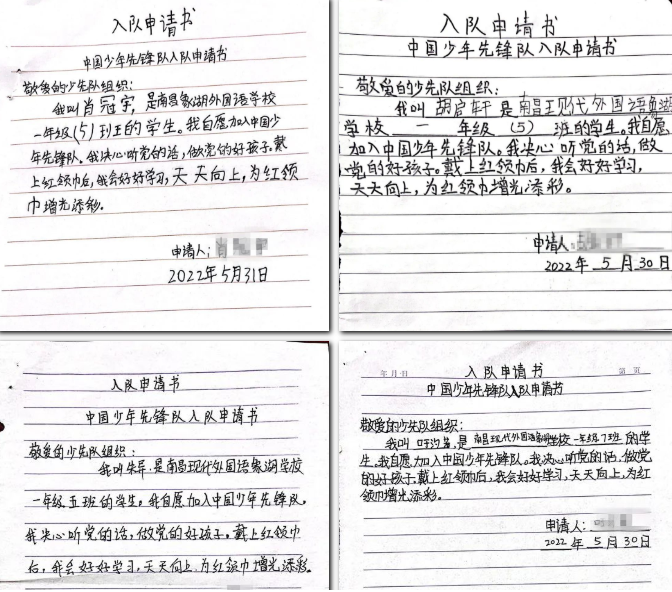 入队申请书
中国少年先锋队入队申请书
敬爱的少先队组织：
我叫肖冠宇，是南昌象湖外国语学校
一年级（5）班的学生。我自愿加入中国少
年先锋队。我决心听党的话，做党的好孩子。戴
上红领巾后，我会好好学习，天天向上，为红领
巾增光添彩。
申请人：肖
2022年5月31日
入队申请书
中国少年先锋队入队申请书
敬爱的少先队组织：
我叫胡启轩是南昌现代外国语象湖
学校一年级（5）班的学生。我自愿
加入中国少年先锋队。我决心听党的话，做
党的好孩子。戴上红领巾后，我会好好学习，
天天向上，为红领巾增光添彩。
申请人
2022年5月30日
入队申请书
中国少年先锋队入队申请书
敬爱的少先队组织：
我叫朱 是南昌现代外国语象湖学校
一年级五班的学生。我自愿加入中国少年先锋队。
我决心听党的话，做党的好孩子。戴上红领巾
后，我会好好学习，天天向上，为红领巾增光添彩。
年 月 日 第 页
入队申请书
中国少年先锋队入队申请书
敬爱的少先队组织：
我叫 是南昌现代外国语象湖学校一年级7班的学
生。我自愿加入中国少年先锋队。我决心听党的话，做党
的好孩子。戴上红领巾后，我会好好学习，天天向上，为红
领巾增光添彩。
申请人：
2022年5月30日